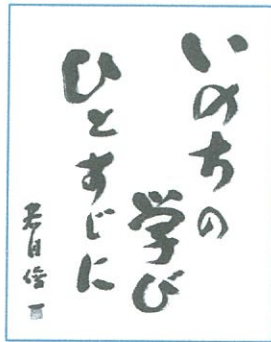 いのちの
学び
ひとすじに
若月俊一